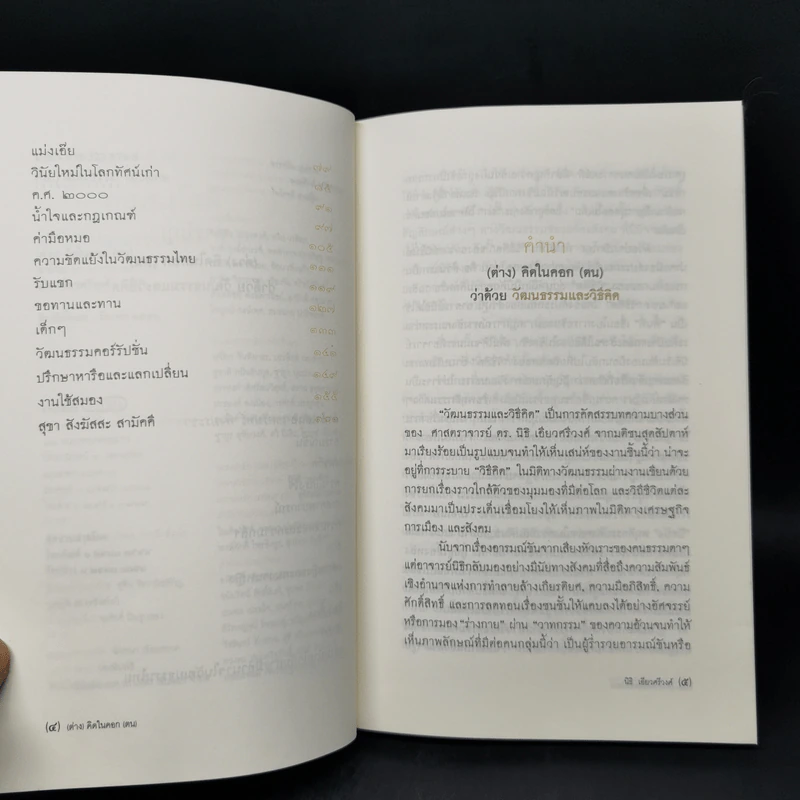 แม่งเอ๊ย
วินัยใหม่ในโลกทัศน์เก่า
ค.ศ. ๒๐๐๐
น้ำใจและกฎเกณฑ์
ค่ามือหมอ
ความขัดแย้งในวัฒนธรรมไทย
รับแขก
ขอทานและทาน
เด็กๆ
วัฒนธรรมคอร์รัปชั่น
ปรึกษาหารือและแลกเปลี่ยน
งานใช้สมอง
สุขา สังฆัสสะ สามัคคี
๙๑
๙๗
๑๐๕
๑๑๑
๑๑๙
๑๒๗
๑๓๓
๑๔๑
๑๔๙
๑๕๕
(๔) (ต่าง) คิดในคอก (ตน)
คำนำ
(ต่าง) คิดในคอก (ตน)
ว่าด้วย วัฒนธรรมและวิธีคิด
"วัฒนธรรมและวิธีคิด" เป็นการคัดสรรบทความบางส่วน
ของ ศาสตราจารย์ ดร. นิธิ เอียวศรีวงศ์ จากมติชนสุดสัปดาห์
มาเรียงร้อยเป็นรูปแบบจนทำให้เห็นเสน่ห์ของงานชิ้นนี้ว่า น่าจะ
อยู่ที่การระบาย "วิธีคิด" ในมิติทางวัฒนธรรมผ่านงานเขียนด้วย
การยกเรื่องราวใกล้ตัวของมุมมองที่มีต่อโลก และวิถีชีวิตแต่ละ
สังคมมาเป็นประเด็นเชื่อมโยงให้เห็นภาพในมิติทางเศรษฐกิจ
การเมือง และสังคม
นับจากเรื่องอารมณ์ขันจากเสียงหัวเราะของคนธรรมดาๆ
แต่อาจารย์นิธิกลับมองอย่างมีนัยทางสังคมที่สื่อถึงความสัมพันธ์
เชิงอำนาจแห่งการทำลายล้างเกียรติยศ, ความมีอภิสิทธิ์, ความ
ศักดิ์สิทธิ์ และการลดทอนเรื่องชนชั้นให้แคบลงได้อย่างอัศจรรย์
หรือการมอง "ร่างกาย" ผ่าน "วาทกรรม" ของความอ้วนจนทำให้
เห็นภาพลักษณ์ที่มีต่อคนกลุ่มนี้ว่า เป็นผู้ร่ำรวยอารมณ์ขันหรือ
นิธิ เอียวศรีวงศ์ (๕)